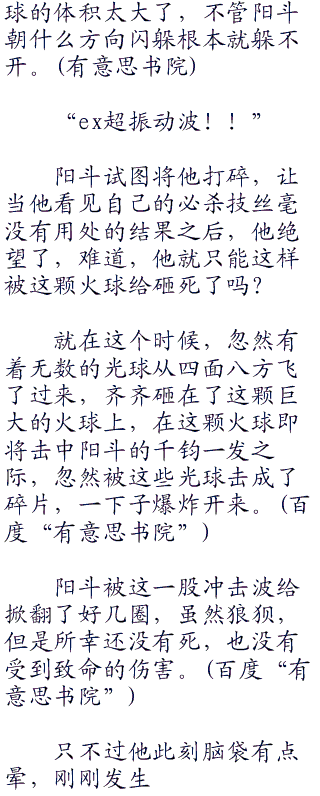 球的体积太大了，不管阳斗
朝什么方向闪躲根本就躲不
开。(有意思书院)
“ex超振动波！！”
阳斗试图将他打碎，让
当他看见自己的必杀技丝毫
没有用处的结果之后，他绝
望了，难道，他就只能这样
被这颗火球给砸死了吗？
就在这个时候，忽然有
着无数的光球从四面八方飞
了过来，齐齐砸在了这颗巨
大的火球上，在这颗火球即
将击中阳斗的千钧一发之
际，忽然被这些光球击成了
碎片，一下子爆炸开来。(百
度“有意思书院”)
阳斗被这一股冲击波给
掀翻了好几圈，虽然狼狈，
但是所幸还没有死，也没有
受到致命的伤害。(百度“有
意思书院”)
只不过他此刻脑袋有点
晕，刚刚发生